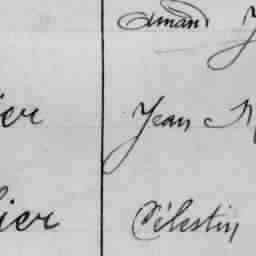 Armand J
ier Jean N
lier Célestin